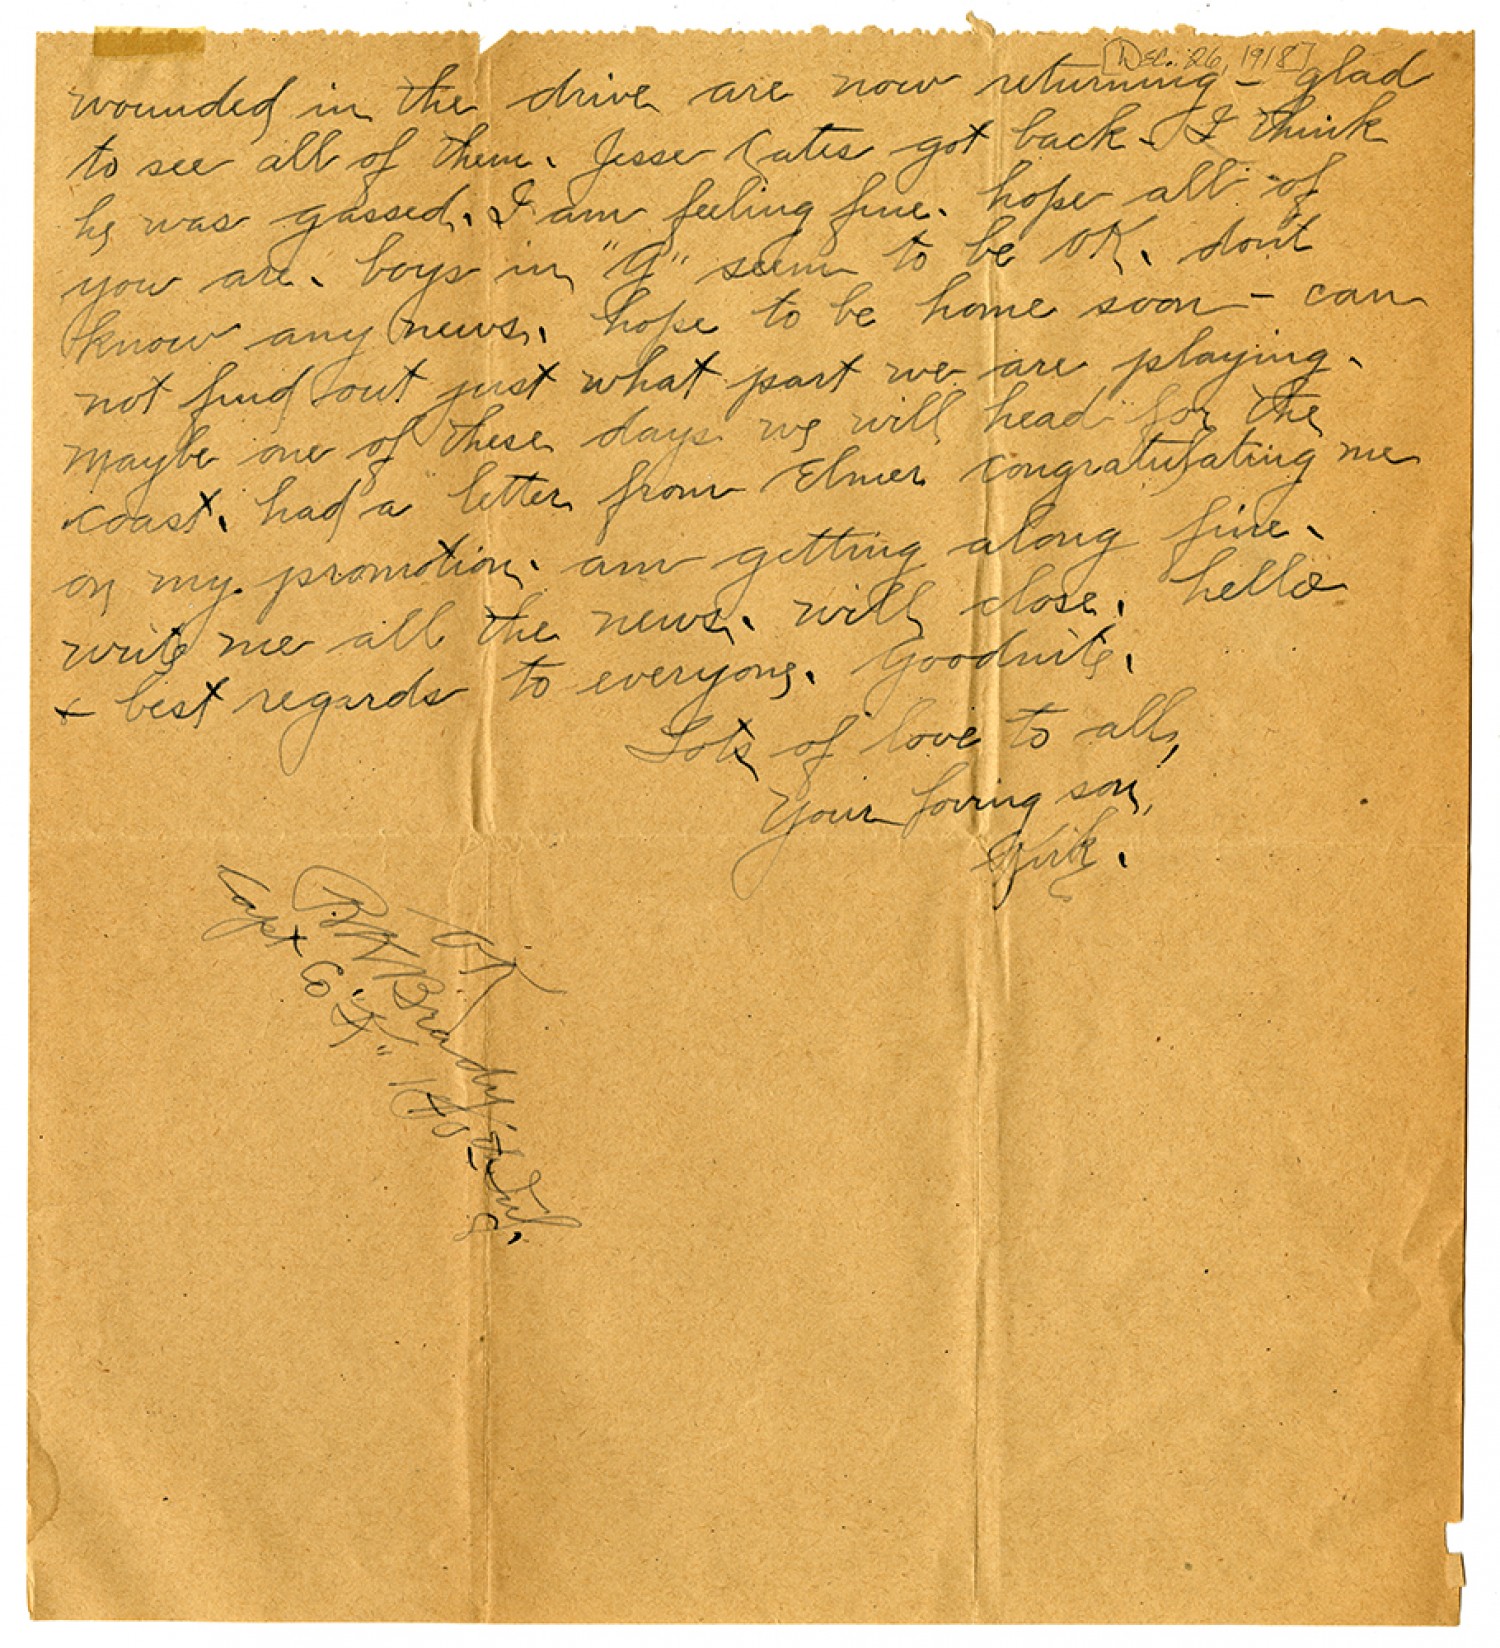 [Dec. 26, 1918]
wounded in the drive are now returning - glad
to see all of them. Jesse Cates got back - I think
he was gassed. I am feeling fine. hope all of
you are. boys in "G" seem to be OK. dont
know any news. hope to be home soon - can
not find out just what part we are playing.
Maybe one of these days we will head for the
coast. had a letter from Elmer congratulating me
on my promotion. am getting along fine.
write me all the news. will close. hello
& best regards to everyone. Goodnite.
Lots of love to all,
Your loving son,
Kirk.
OK
Brady
Capt Co